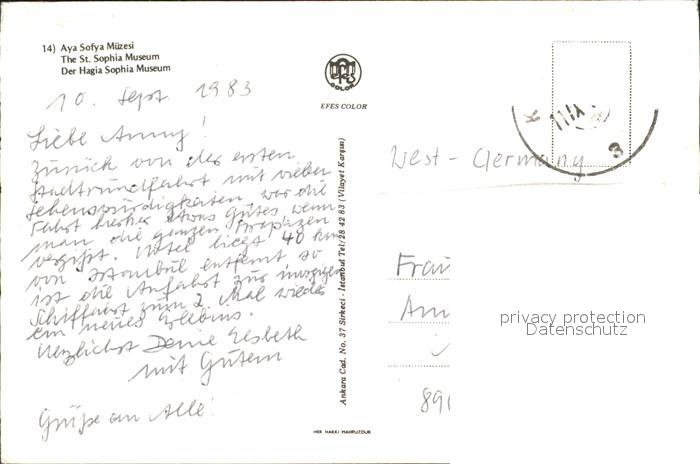 14) Aya Sofya Müzesi
The St. Sophia Museum
Der Hagia Sophia Museum
10. Sept. 1983
Liebe Anny!
Zurück von der ersten
Stadtrundfahrt mit vielen
Sehenswürdigkeiten, war die
Fahrt hierher etwas Gutes wenn
man die ganzen Strapazen
vergißt. Hotel liegt 40 km
von Istanbul entfernt so
ist die Anfahrt zur morgigen
Schiffahrt zum 2. Mal wieder
ein neues Erlebnis.
Herzlichst Deine Elsbeth
mit Gütern
Grüße an Alle!
EFES COLOR
Ankara Cad. No. 37 Sirkeci - İstanbul Tel: 28 42 83 (Vilayet Karşısı)
HER HAKKI MAHFUZDUR
West-Germany
Frau
An
891
privacy protection
Datenschutz